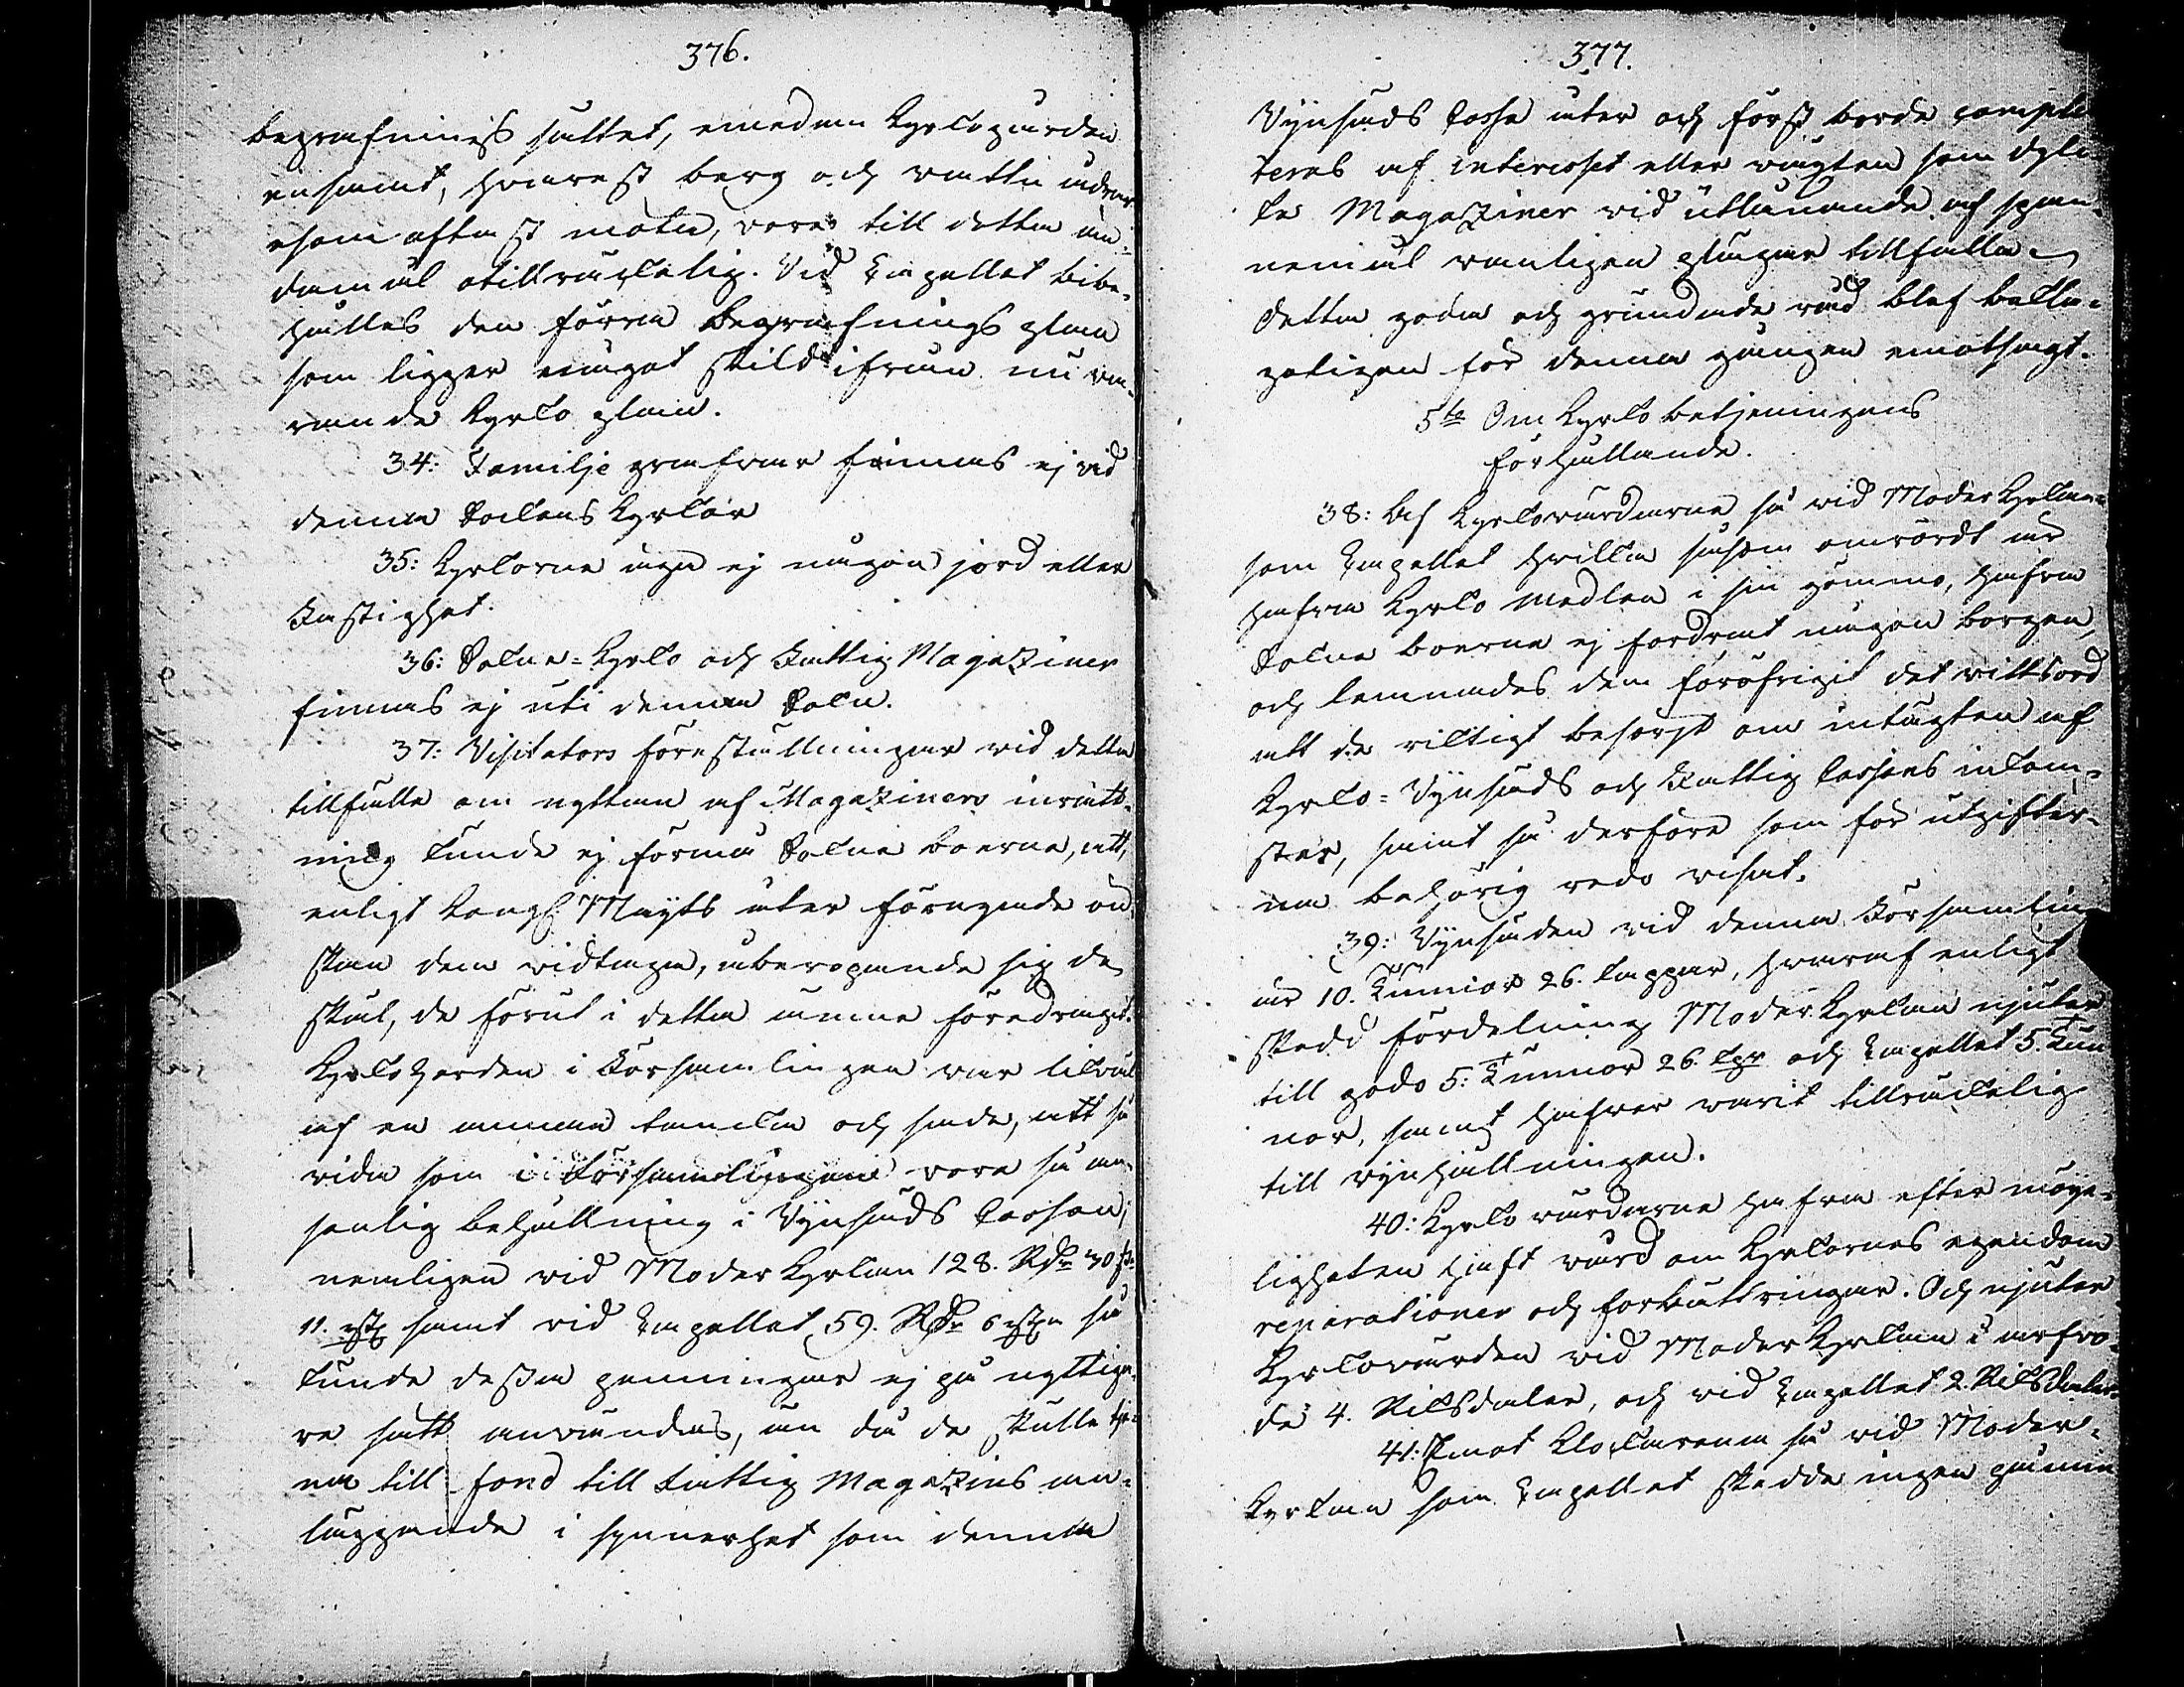 376.
begrafnings fältet, emedan Kyrkogården
ensamt, hvarest berg och vatten
esomoftast möta, vore till detta än-
damål otillräckelig. Vid Capellet bibe-
hålles den förra Begrafnings plan
som ligger något skild ifrån nu va-
rande Kyrko plan.
34: Familje grafvar finnas ej vid
denna Sockens Kyrkor
35: Kyrkorna äga ej någon jord eller
Fastighet.
36: Sokne-Kyrko och Fattig Magaziner
finnas ej uti denna Sokn.
37: Visitators föreställningar vid detta
tillfälle om nyttan af Magaziners inrätt-
ning kunde ej förmå Sokne boerna, att,
enligt Kongl Mayts åter förnyade ön-
skan dem vidtaga, åberopande sig de
skäl, de förut i detta ämne föredragit.
Kyrko Herden i Församlingen var likväl
af en annan tanke och sade, att så
vida som i Församlingen vore så an-
senlig behållning i Vynsäds Cassan,
nemligen vid Moder Kyrkan 128. Rdr 30 s.
11. rst samt vid Capellet 59. Rdr 6 rst så
kunde dessa penningar ej på nyttiga-
re sätt användas, än då de skulle tje-
na till fond till Fattig Magazins an-
läggande i synnerhet som denna
377.
Vynsäds Casse åter och först borde comple-
teras af interesset eller vägten som dyli-
ke Magaziner vid utlånande af span-
nemål vanligen plägar tillfalla
Detta goda och grundade råd blef bekla-
geligen för denna gången emotsagt.
5te Om Kyrko betjeningens
förhållande.
38: Af Kyrkovärdarne så vid Moder Kyrkan
som Capellet hvilka såsom omrördt är
hafva Kyrko Medlen i sin gömmo, hafva
Sokne boerna ej fordrat någon borgen,
och lemnades dem föröfrigit det vittsord
att de riktigt besörgt om intägten af
Kyrko-Vynsäds och Fattig Cassans inkom-
ster, samt så derföre som för utgifter-
na behörig redo visat.
39: Vynsäden vid denna Församling
är 10. Tunnor 26. kappar, hvaraf enligt
skedd fördelning Moder Kyrkan njuter
till godo 5: Tunnor 26. kpr och Capellet 5. Tun
nor, samt hafver varit tillräckelig
till vynhållningen.
40: Kyrko värdarne hafva efter möye-
ligheten haft vård om Kyrkornes egendom
reparationer och förbättringar. Och njuter
Kyrkovärden vid Moder Kyrkan i arfvo-
de 4. Riksdaler, och vid Capellet 2. Riksdaler.
41: Emot Klockarena så vid Moder-
Kyrkan som Capellet skedde ingen påmin